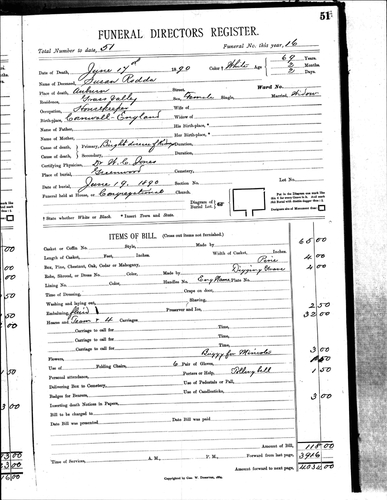 51
FUNERAL DIRECTORS REGISTER.
Total Number to date, 51 Funeral No. this year, 16
Date of Death, June 17th 1890 Color † White Age 69 Years. 2 Months. 2 Days.
Name of Deceased, Susan Rodda
Place of death, Auburn Street, Ward No.
Residence, Grass Valley Sex, Female Single, Married, Widow
Occupation, Housekeeper Wife of
Birth-place, Cornwall - England Widow of
Name of Father, His Birth-place,*
Name of Mother, Her Birth-place,*
Cause of death, Primary, Bright disease of Kidneys Duration,
Cause of death, Secondary, Duration,
Certifying Physician, Dr W. C. Jones
Place of burial, Greenwood Cemetery, Lot No.
Date of burial, June 19, 1890 Section No.
Funeral held at House, or Congregational Church. Diagram of Burial Lot.
† State whether White or Black. * Insert Town and State.
ITEMS OF BILL. (Cross out items not furnished.)
Casket or Coffin No. Style, Made by 65 00
Length of Casket, Feet, Inches. Width of Casket, Inches.
Box, Pine, Chestnut, Oak, Cedar or Mahogany, Pine 4 00
Robe, Shroud, or Dress No. Color, Made by Digging Grave 4 00
Lining No. Color, Handles No. Eng Name Plate No.
Time of Dressing, Crape on door,
Washing and laying out, Shaving,
Embalming fluid Preserver and Ice, 2 50
Hearse and Team & 4 Carriages. 32 00
Carriage to call for Time,
Carriage to call for Time,
Carriage to call for Time,
Carriage to call for Time,
Flowers, Buggy for Minister 3 00
Use of Folding Chairs, 6 Pair of Gloves, 1 50
Personal attendance, Porters or Help, Tolling bell 1 50
Delivering Box to Cemetery, Use of Pedestals or Pall,
Badges for Bearers, Use of Candlesticks,
Inserting death Notices in Papers, 3 00
Bill to be charged to
Date Bill was presented Date Bill was paid
Amount of Bill, 118 00
Time of Services, A. M., P. M. Forward from last page, 3916
Amount forward to next page, 4034 00
Copyrighted by Geo. W.